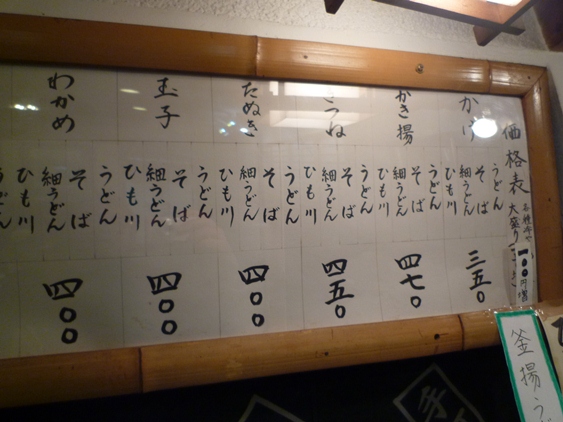 価格表
大盛り
一〇〇円増
かけ
うどん
そば
細うどん
ひも川
三五〇
かき揚
うどん
そば
細うどん
ひも川
四七〇
つね
うどん
そば
細うどん
ひも川
四五〇
たぬき
うどん
そば
細うどん
ひも川
四〇〇
玉子
うどん
そば
細うどん
ひも川
四〇〇
わかめ
うどん
そば
細うどん
ひも川
四〇〇
うどん
釜揚う
手